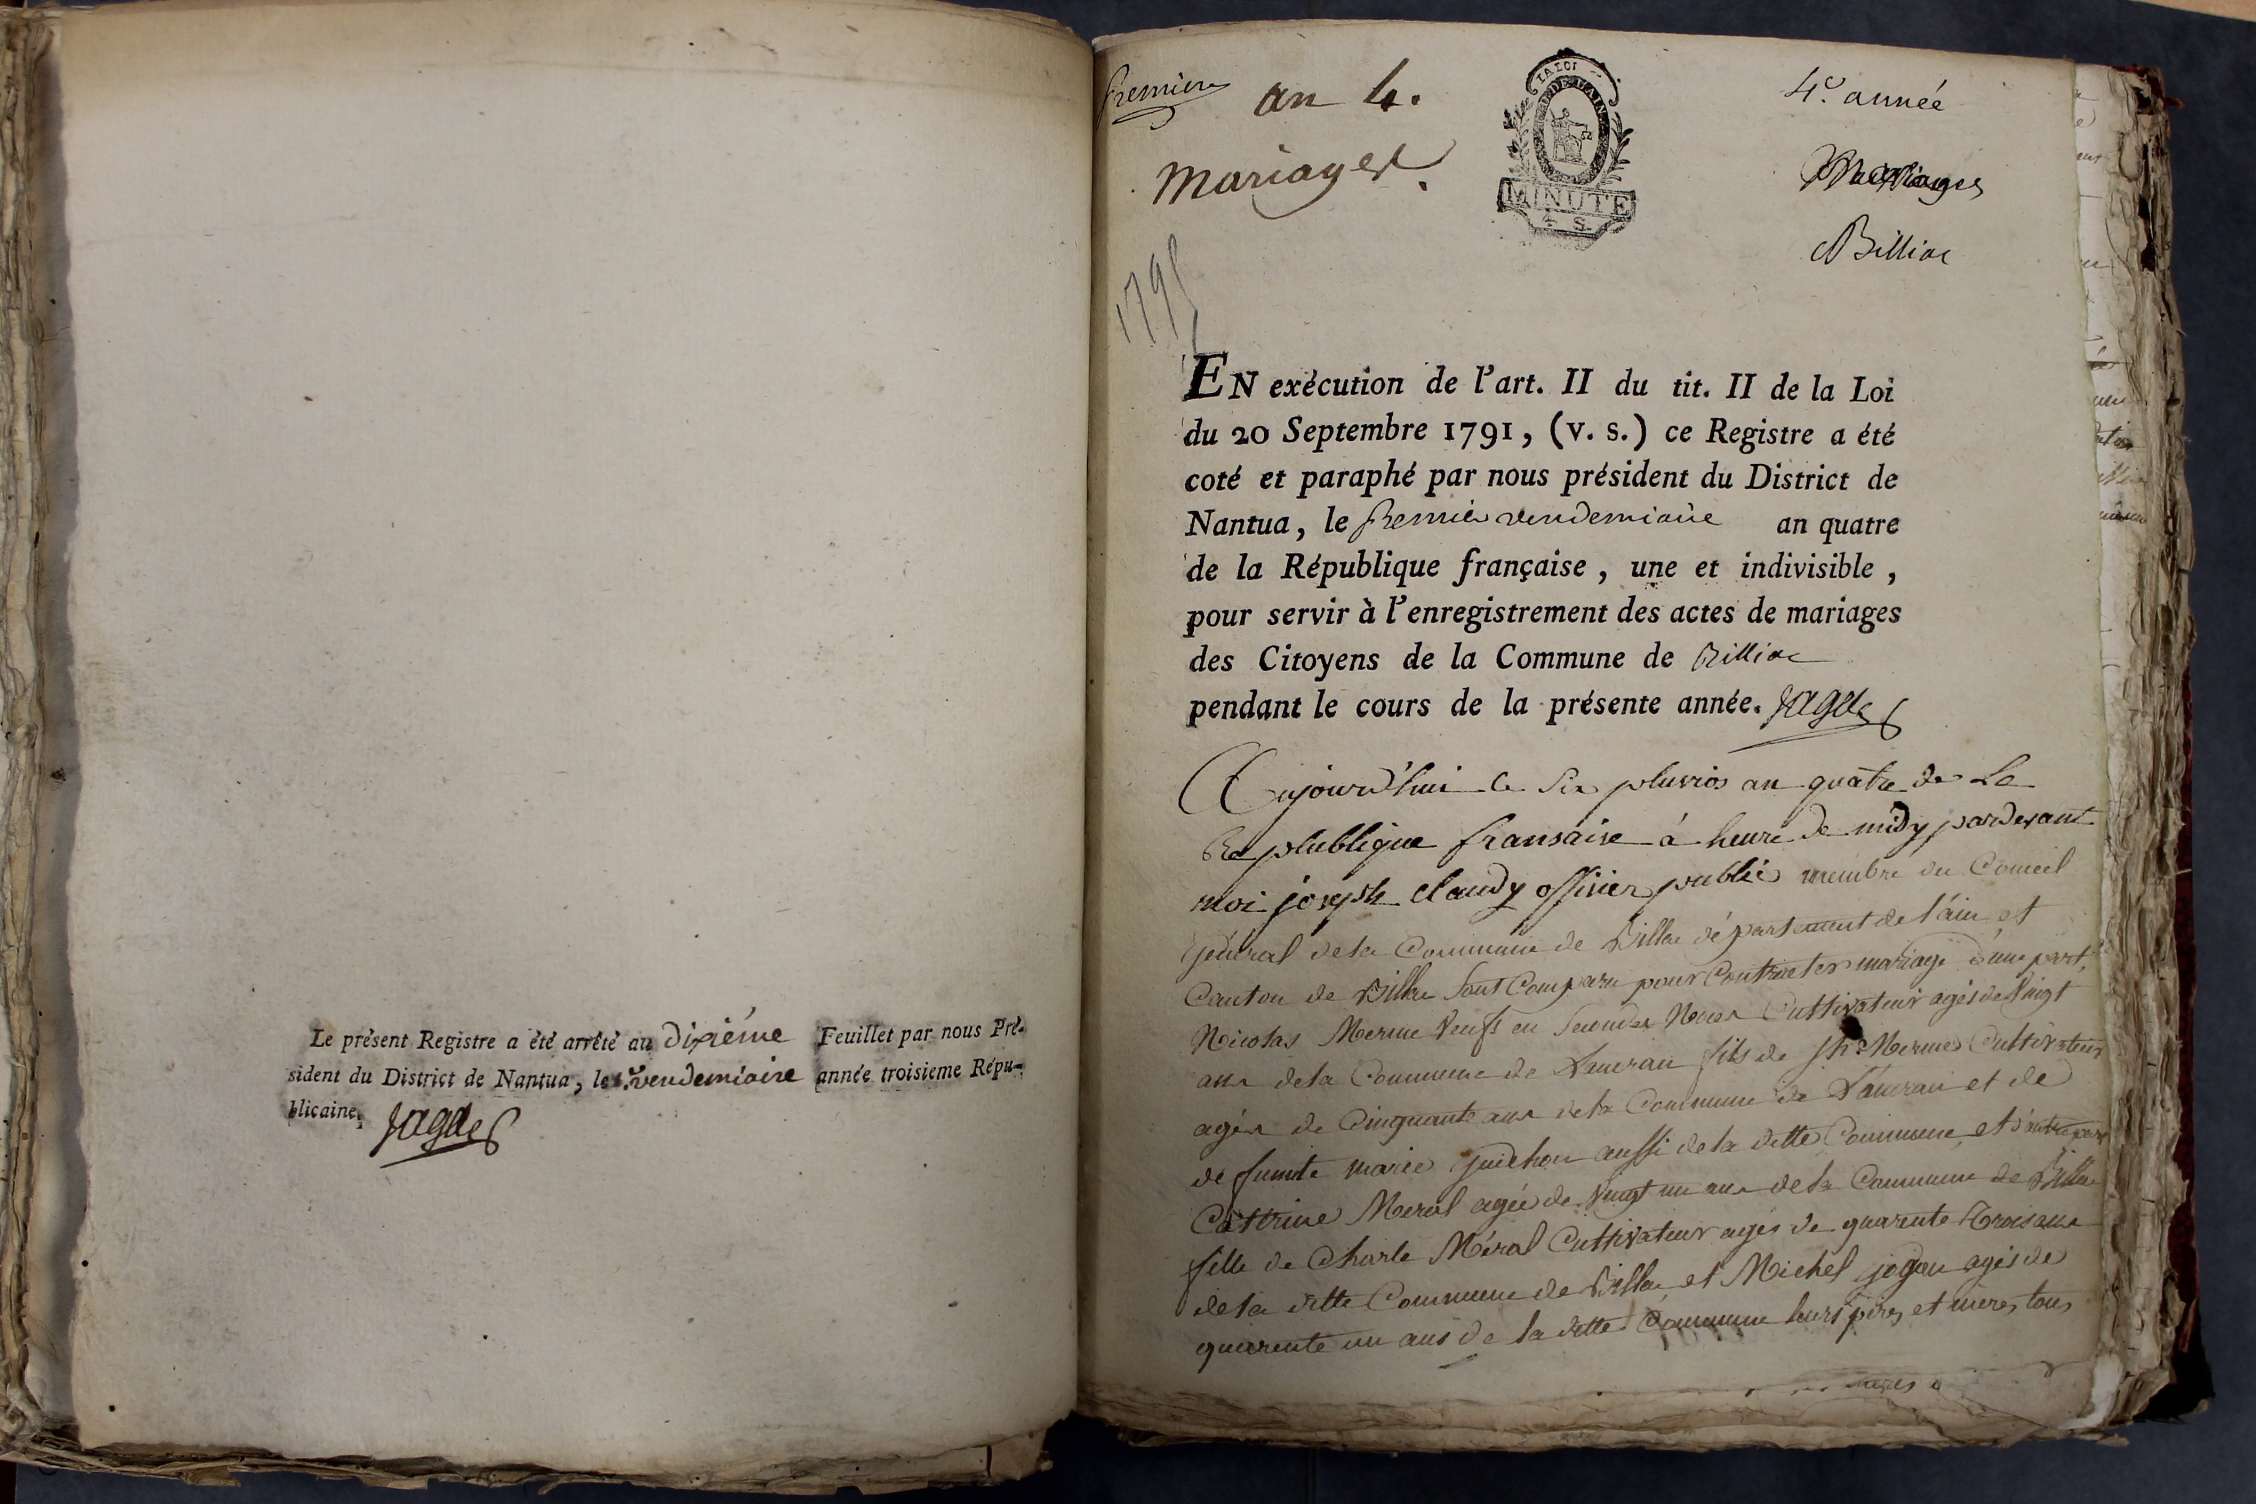 Le présent Registre a été arrêté au Dixiéme Feuillet par nous Pré-
sident du District de Nantua, le 1.er vendemiaire année troisieme Répu-
blicaine.
Jagde
premiere
an 4.
mariages.
1795
LA LOI
MINUTE
4 S.
4.e année
Mariages
Billiac
EN exécution de l'art. II du tit. II de la Loi
du 20 Septembre 1791, (v. s.) ce Registre a été
coté et paraphé par nous président du District de
Nantua, le premier vendemiaire an quatre
de la République française, une et indivisible,
pour servir à l'enregistrement des actes de mariages
des Citoyens de la Commune de Billiac
pendant le cours de la présente année. Jagde
Aujourd'hui le six pluvios an quatre de La
Replublique fransaise à heure de midy pardevant
moi joseph claudy offisier public membre du Conseil
général de la Commune de Billia département de l'ain et
Canton de Billia sont Comparu pour Contracter mariage d'une part
Nicolas Merme Veufs en Secondes Noces Cultivateur agés de Vingt
ans de la Commune de fils de jh Merme Cultivateur
agés de Cinquante ans de la Commune de et de
de funte marie guichon aussi de la ditte Commune et d'autre part
Cattrine Meral agée de Vingt un ans de la Commune de Billia
fille de Charle Méral Cultivateur agés de quarente trois ans
de la ditte Commune de Billia et Michel agés de
quarente un ans de la ditte Commune leurs pères et meres tous